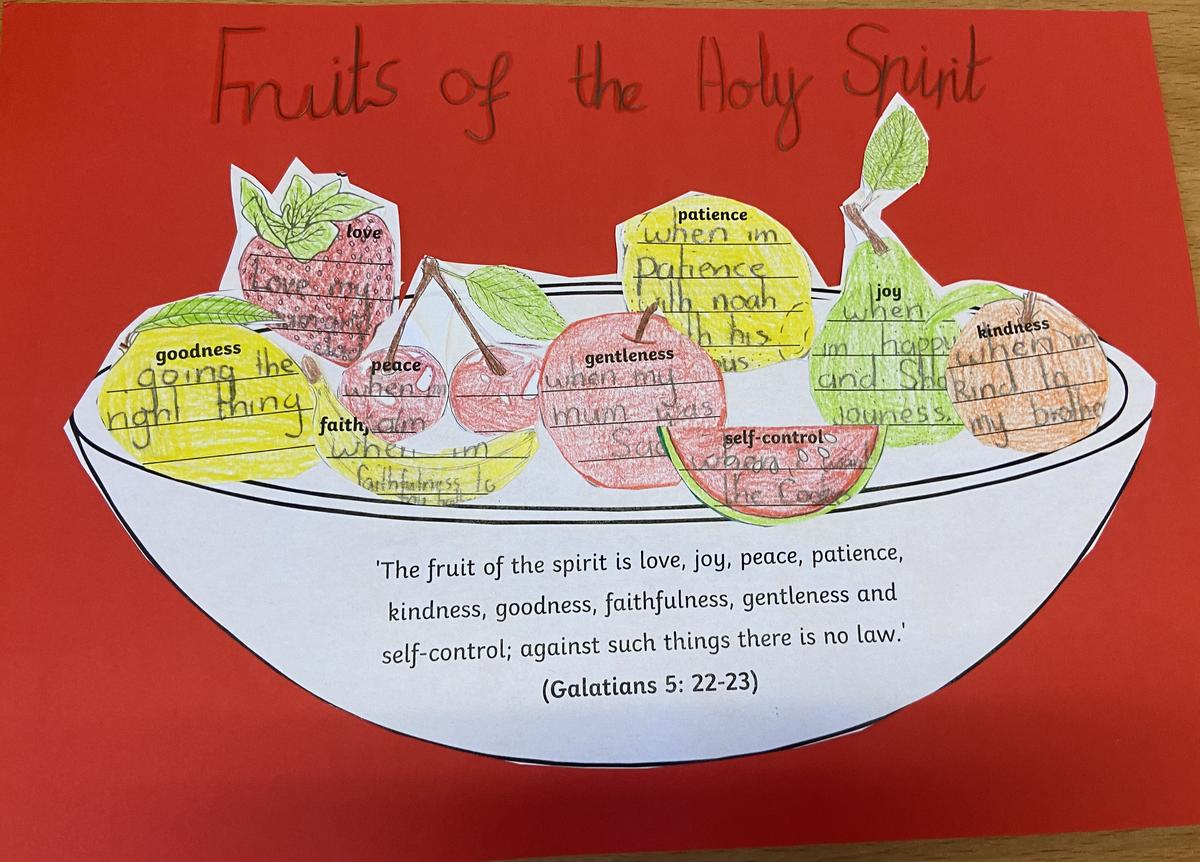 Fruits of the Holy Spirit
love
Love my
patience
when im
Patience
with noah
his
joy
when
im happy
and
joyness.
kindness
when im
kind to
my brothe
goodness
going the
right thing
peace
when
gentleness
when my
mum was
Sad
faith,
when im
faithfulness to
my
self-control
when I want
the
'The fruit of the spirit is love, joy, peace, patience,
kindness, goodness, faithfulness, gentleness and
self-control; against such things there is no law.'
(Galatians 5: 22-23)